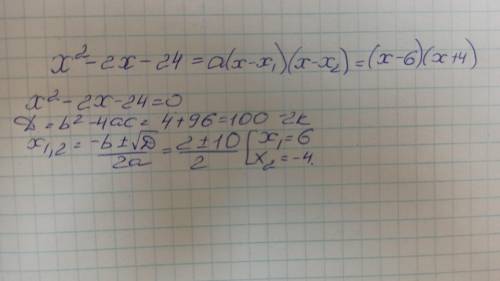 x² - 2x - 24 = a(x-x₁)(x-x₂) = (x-6)(x+4)
x² - 2x - 24 = 0
D = b² - 4ac = 4 + 96 = 100 2k
x₁,₂ = (-b ± √D)/2a = (2 ± 10)/2 [x₁ = 6
x₂ = -4.